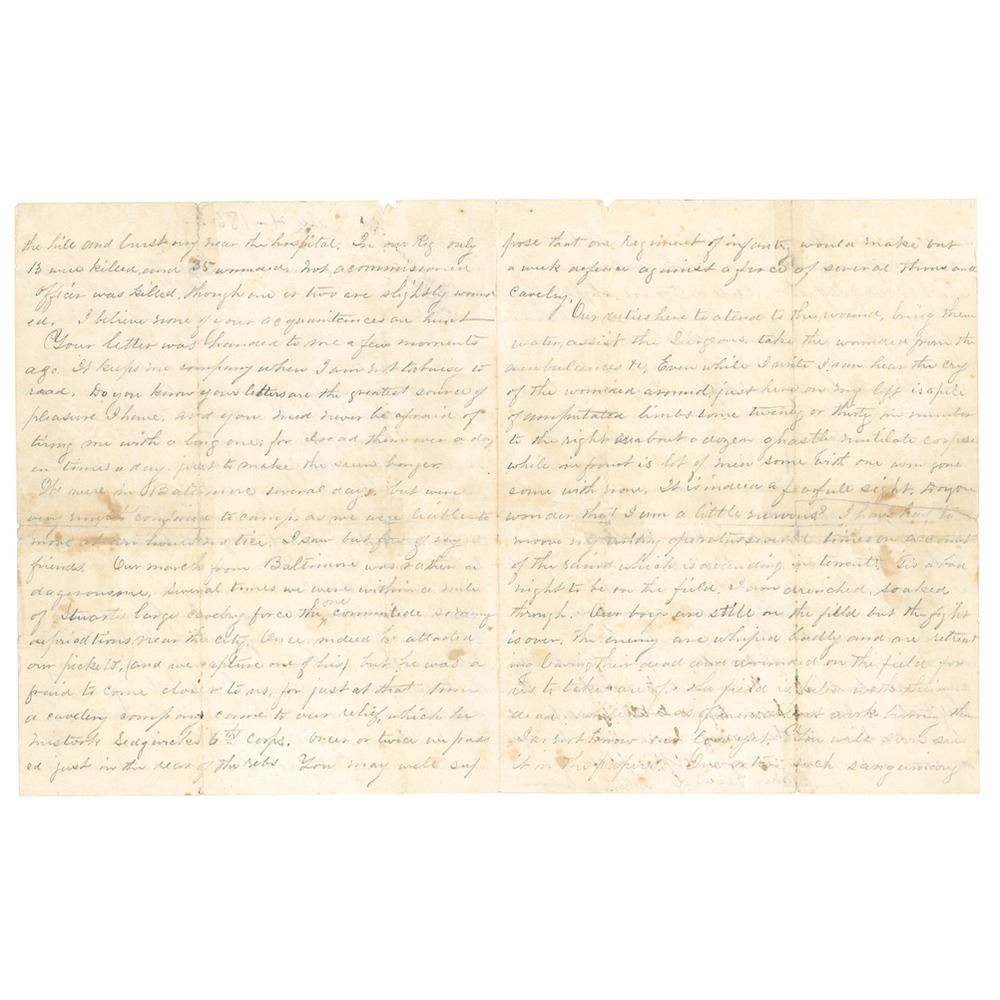 the hill and burst near the hospital. In our Reg only
13 were killed, and 35 wounded. Not a commissioned
officer was killed, though one or two are slightly wound
ed. I believe none of your acquaintances are hurt
Your letter was handed to me a few moments
ago. It keeps me company when I am not to busy to
read. Do you know your letters are the greatest source of
pleasure I have, and you need never be afraid of
tiring me with a long one, for I read them over a doz
en times a day just to make the seem longer
We were in Baltimore several days but were
very much confined to camp, as we were liable to
move at an hours notice. I saw but few of my
friends. Our march from Baltimore was rather a
dagerous one, several times we were within a mile
of Stuarts large cavelry force the one commited so many
depriadtions near the city. Once indeed he attacted
our pickets, (and we capture one of his) but he was a
fraid to come closer to us, for just at that time
a cavelry company came to our relief, which he
mistook Sedgwicks 6th Corps. Once or twice we pass
ed just in the rear of the rebs. You may well sup
pose that one Regiment of infantry would make but
a weak defence against a force of several thousand
cavelry.
Our duties here to atend to the wound, bring them
water, assist the Surgeons, take the wounded from the
ambulances &c, Even while I write I can hear the cry
of the wounded around, just here on my left is a pile
of amputated limbs some twenty or thirty in number
to the right are about a dozen ghastle mutilate corpse
while in front is lot of men some with one arm gone
some with none. It is indeed a fearfull sight. Do you
wonder that I am a little nervous? I have had to
moove my writing operations several times on account
of the rain which is decending in torrents. Tis a bad
night to be on the field. I am drenched, soaked
through. Our boys are still on the field but the fight
is over. The enemy are whiped badly and are retreat
ing leaving their dead and wounded on the field for
us to take care of. The field is with their
dead
I do not know our loss yet. You will soon see
it in the papers. One or two such sanguinary